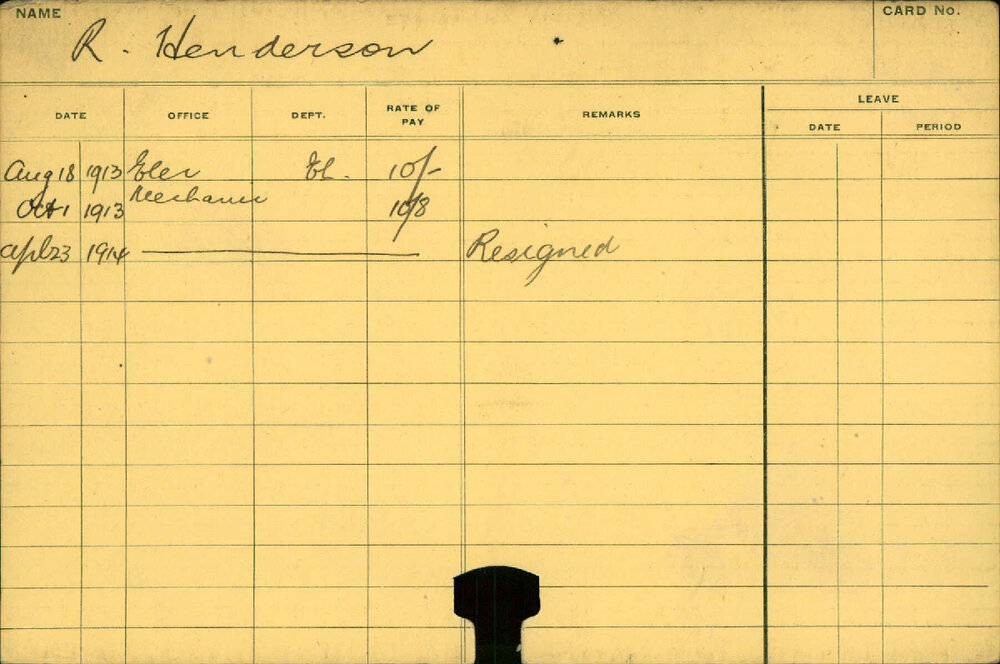 NAME
R. Henderson
CARD No.
DATE OFFICE DEPT. RATE OF PAY REMARKS LEAVE
DATE PERIOD
Aug 18 1913 Elec El. 10/-
Mechanic
Oct 1 1913 10/8
Apl 23 1914 Resigned